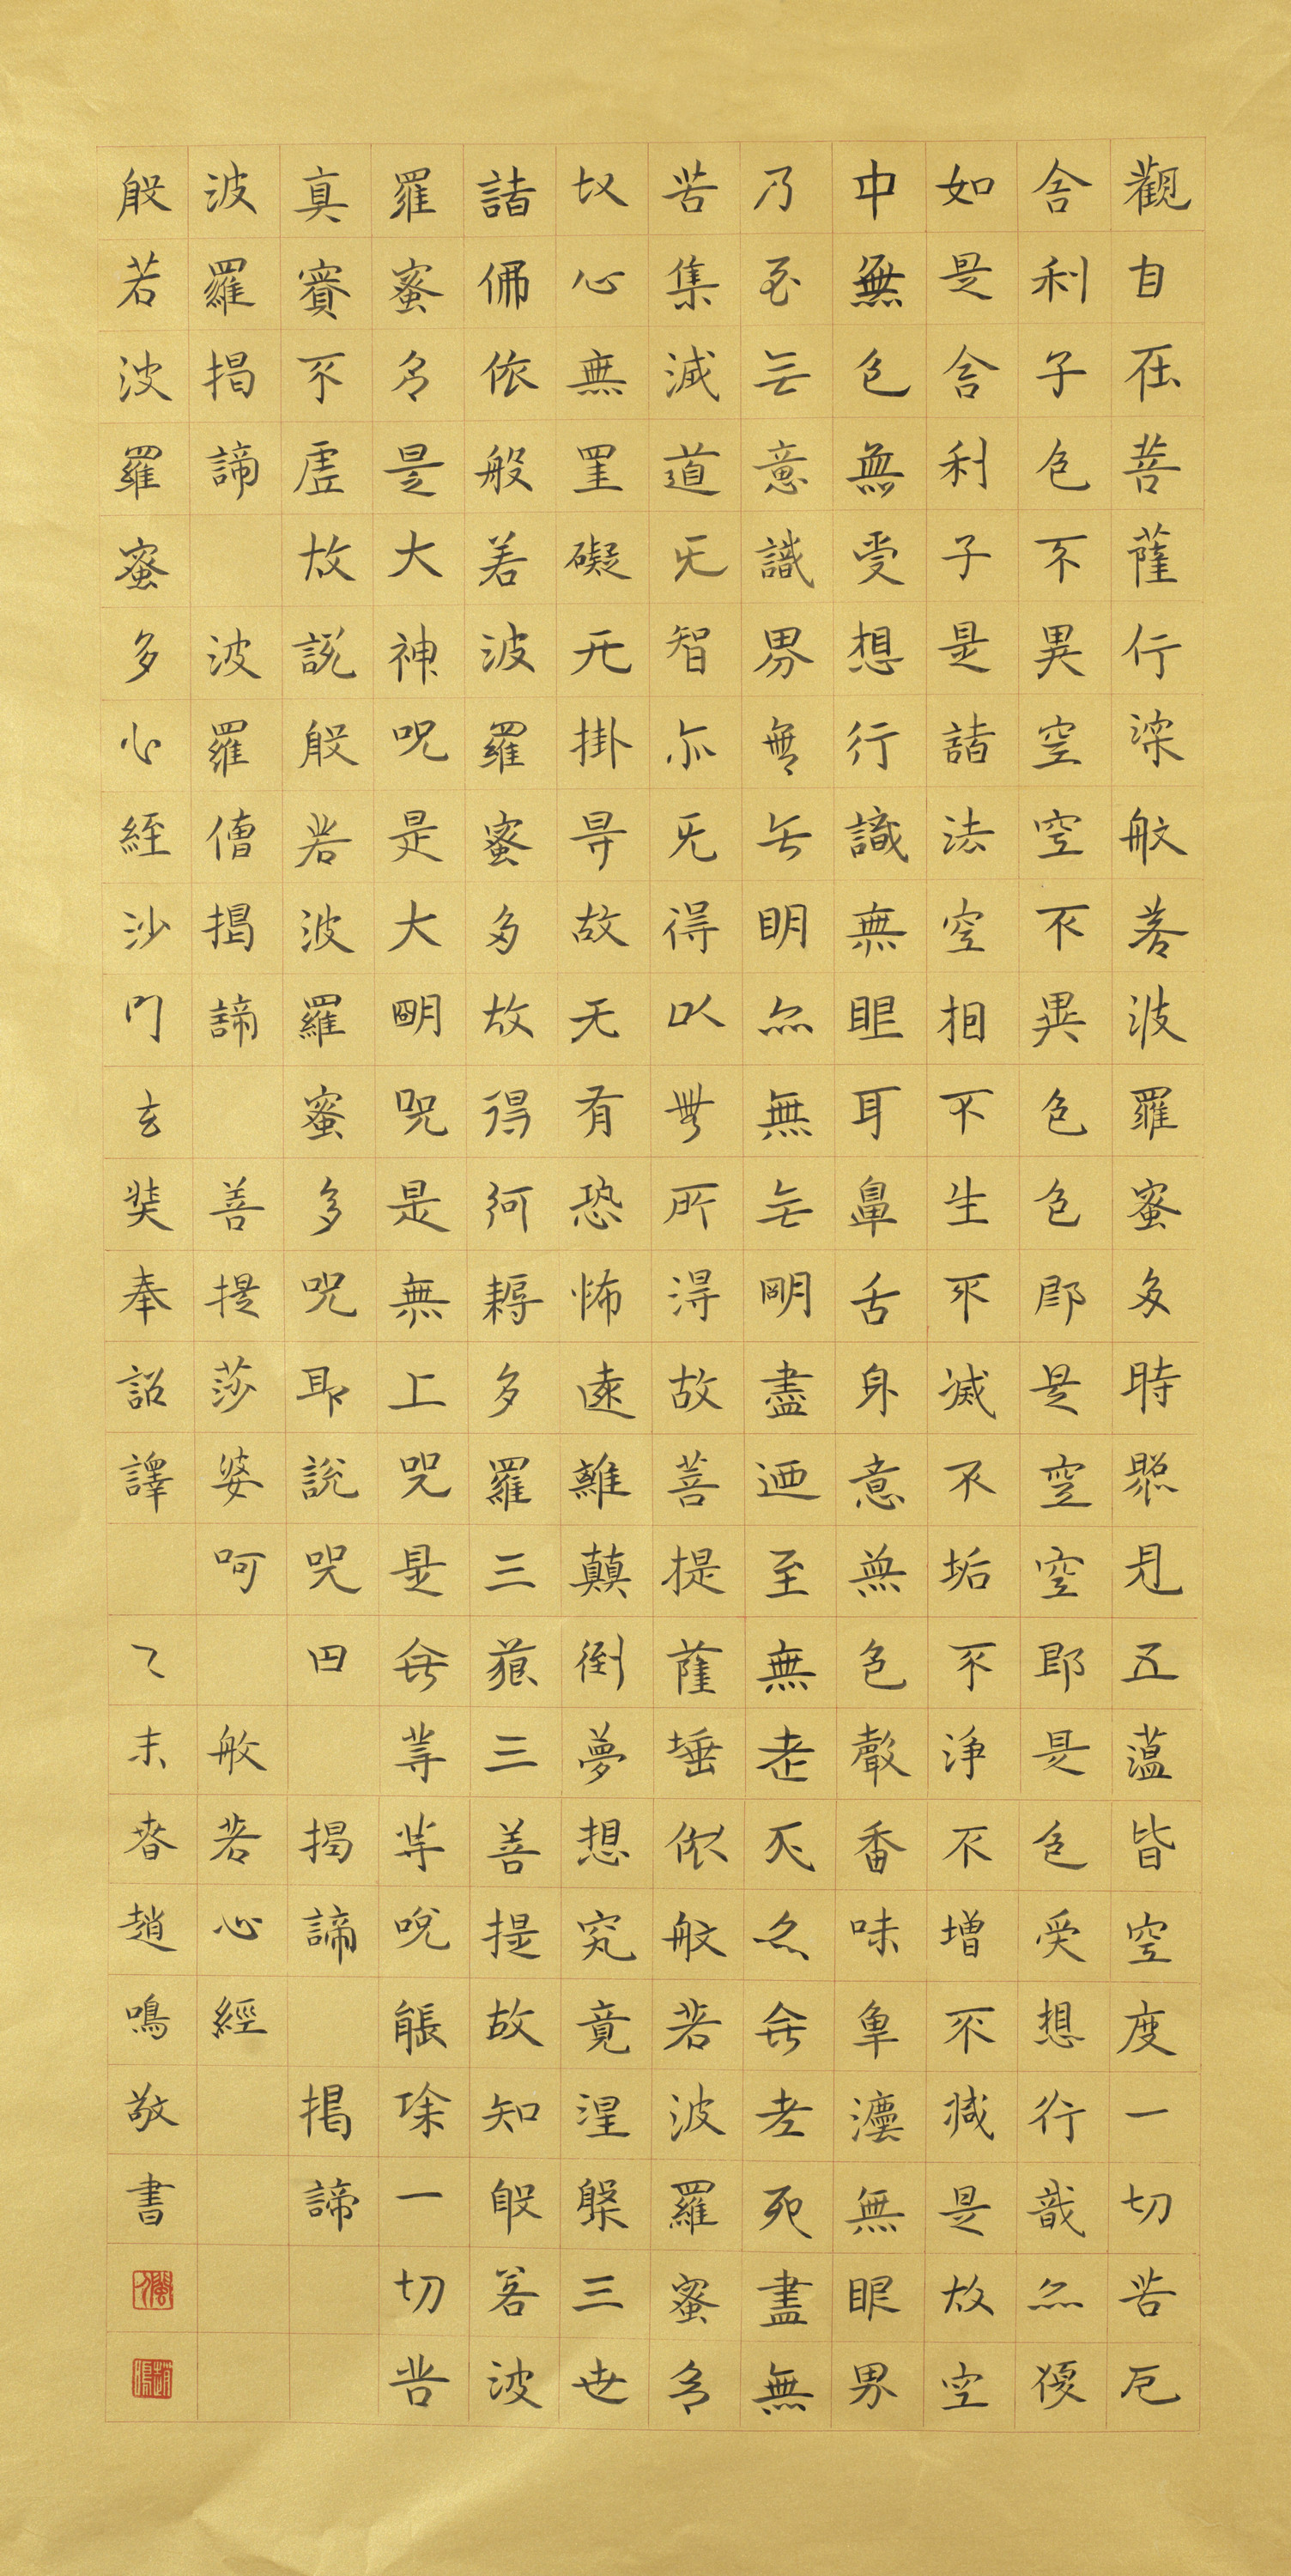 觀自在菩薩行深般若波羅蜜多時照見五蘊皆空度一切苦厄
舍利子色不異空空不異色色即是空空即是色受想行識亦復
如是舍利子是諸法空相不生不滅不垢不淨不增不減是故空
中無色無受想行識無眼耳鼻舌身意無色聲香味觸法無眼界
乃至無意識界無無明亦無無明盡迺至無老死亦無老死盡無
苦集滅道无智亦无得以無所得故菩提薩埵依般若波羅蜜多
故心無罣礙无掛㝵故无有恐怖遠離顛倒夢想究竟涅槃三世
諸佛依般若波羅蜜多故得阿耨多羅三藐三菩提故知般若波
羅蜜多是大神呪是大明呪是無上咒是無等等呪能除一切苦
真實不虛故說般若波羅蜜多呪即說咒曰 揭諦 揭諦
波羅揭諦 波羅僧揭諦 菩提莎婆呵 般若心經
般若波羅蜜多心經沙門玄奘奉詔譯 乙未春趙鳴敬書